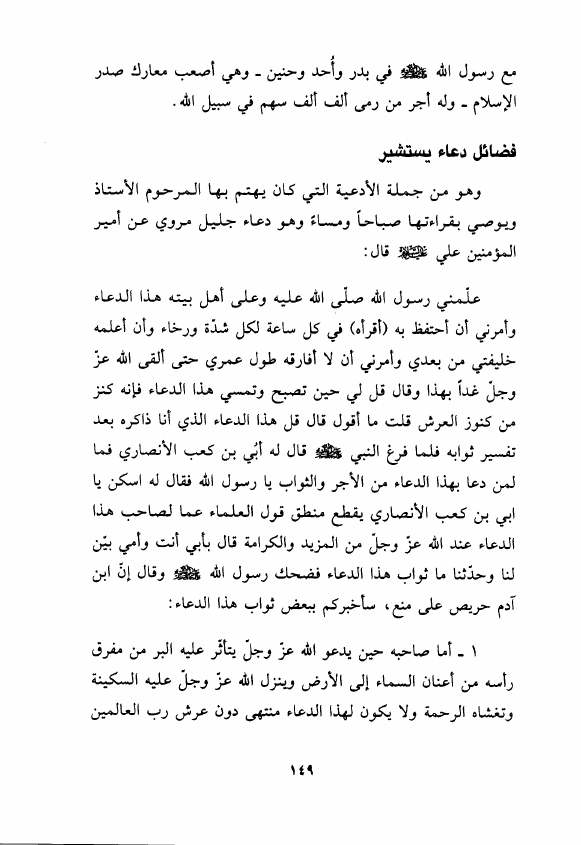 مع رسول الله ﷺ في بدر وأُحد وحنين ـ وهي أصعب معارك صدر
الإسلام ـ وله أجر من رمى ألف ألف سهم في سبيل الله.
فضائل دعاء يستشير
وهو من جملة الأدعية التي كان يهتم بها المرحوم الأستاذ
ويوصي بقراءتها صباحاً ومساءً وهو دعاء جليل مروي عن أمير
المؤمنين علي عليه السلام قال:
علّمني رسول الله صلّى الله عليه وعلى أهل بيته هذا الدعاء
وأمرني أن أحتفظ به (أقرأه) في كل ساعة لكل شدّة ورخاء وأن أعلمه
خليفتي من بعدي وأمرني أن لا أفارقه طول عمري حتى ألقى الله عزّ
وجلّ غداً بهذا وقال قل لي حين تصبح وتمسي هذا الدعاء فإنه كنز
من كنوز العرش قلت ما أقول قال قل هذا الدعاء الذي أنا ذاكره بعد
تفسير ثوابه فلما فرغ النبي ﷺ قال له أبُي بن كعب الأنصاري فما
لمن دعا بهذا الدعاء من الأجر والثواب يا رسول الله فقال له اسكن يا
ابي بن كعب الأنصاري يقطع منطق قول العلماء عما لصاحب هذا
الدعاء عند الله عزّ وجلّ من المزيد والكرامة قال بأبي أنت وأمي بيّن
لنا وحدّثنا ما ثواب هذا الدعاء فضحك رسول الله ﷺ وقال إنّ ابن
آدم حريص على منع، سأخبركم ببعض ثواب هذا الدعاء:
١ ـ أما صاحبه حين يدعو الله عزّ وجلّ يتأثّر عليه البر من مفرق
رأسه من أعنان السماء إلى الأرض وينزل الله عزّ وجلّ عليه السكينة
وتغشاه الرحمة ولا يكون لهذا الدعاء منتهى دون عرش رب العالمين
١٤٩